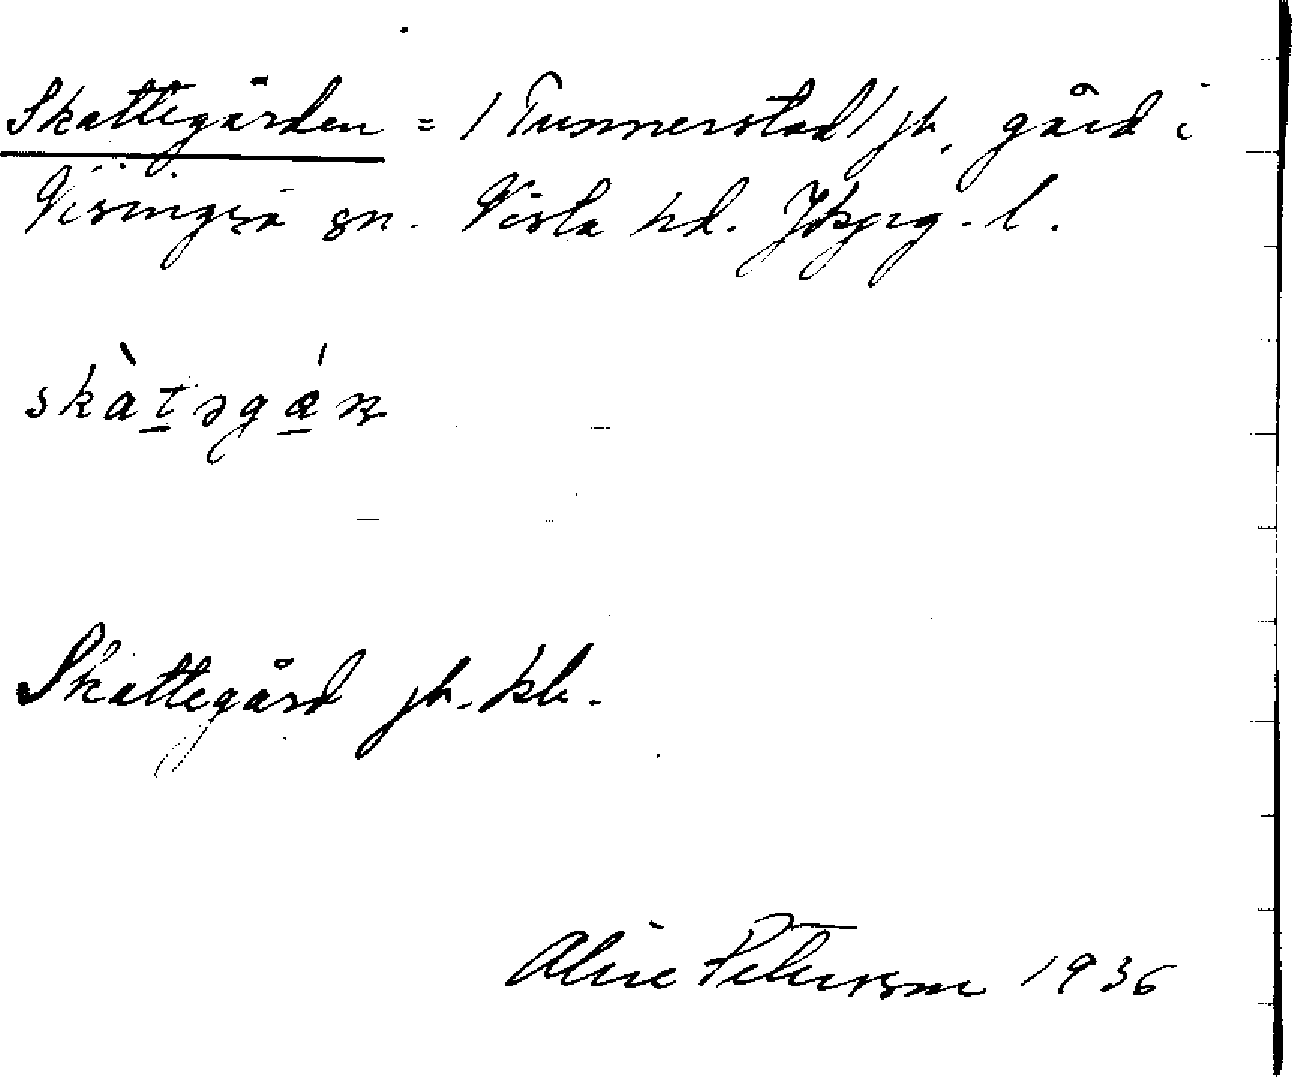 Skattegården = /Tunnerstad/ jb, gård i
Visingsö sn. Vista hd. Jkpg. l.
skàtəgán
Skattegård jb. kb.
Alice Petersson 1936